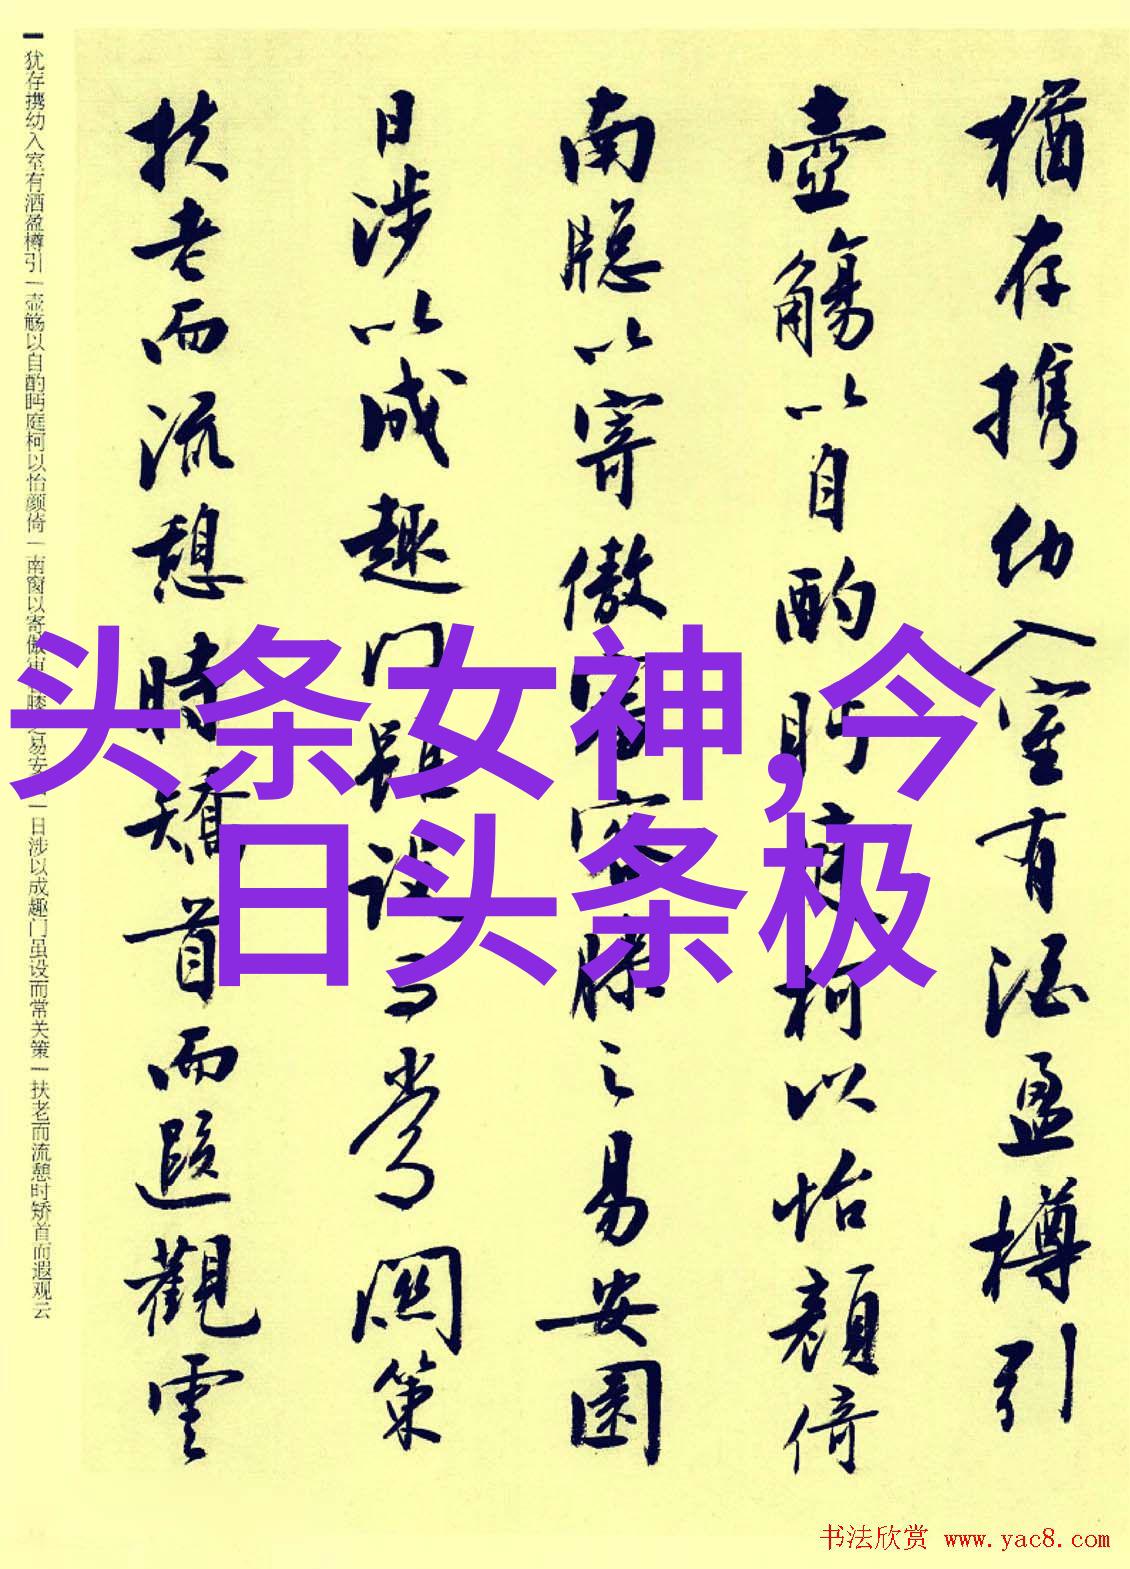 猶存携幼入室有酒盈樽引
壺觴以自酌眄庭柯以怡顔倚
南牕以寄傲審容膝之易安園
日涉以成趣門雖設而常關策
扶老而流憩時矯首而遐觀雲
犹存携幼入室有酒盈樽引一壶觞以自酌眄庭柯以怡颜倚一南窗以寄傲审容膝之易安园一日涉以成趣门虽设而常关策一扶老而流憩时矫首而遐观云
头条女神,今
日头条极
书法欣赏 www.yac8.com